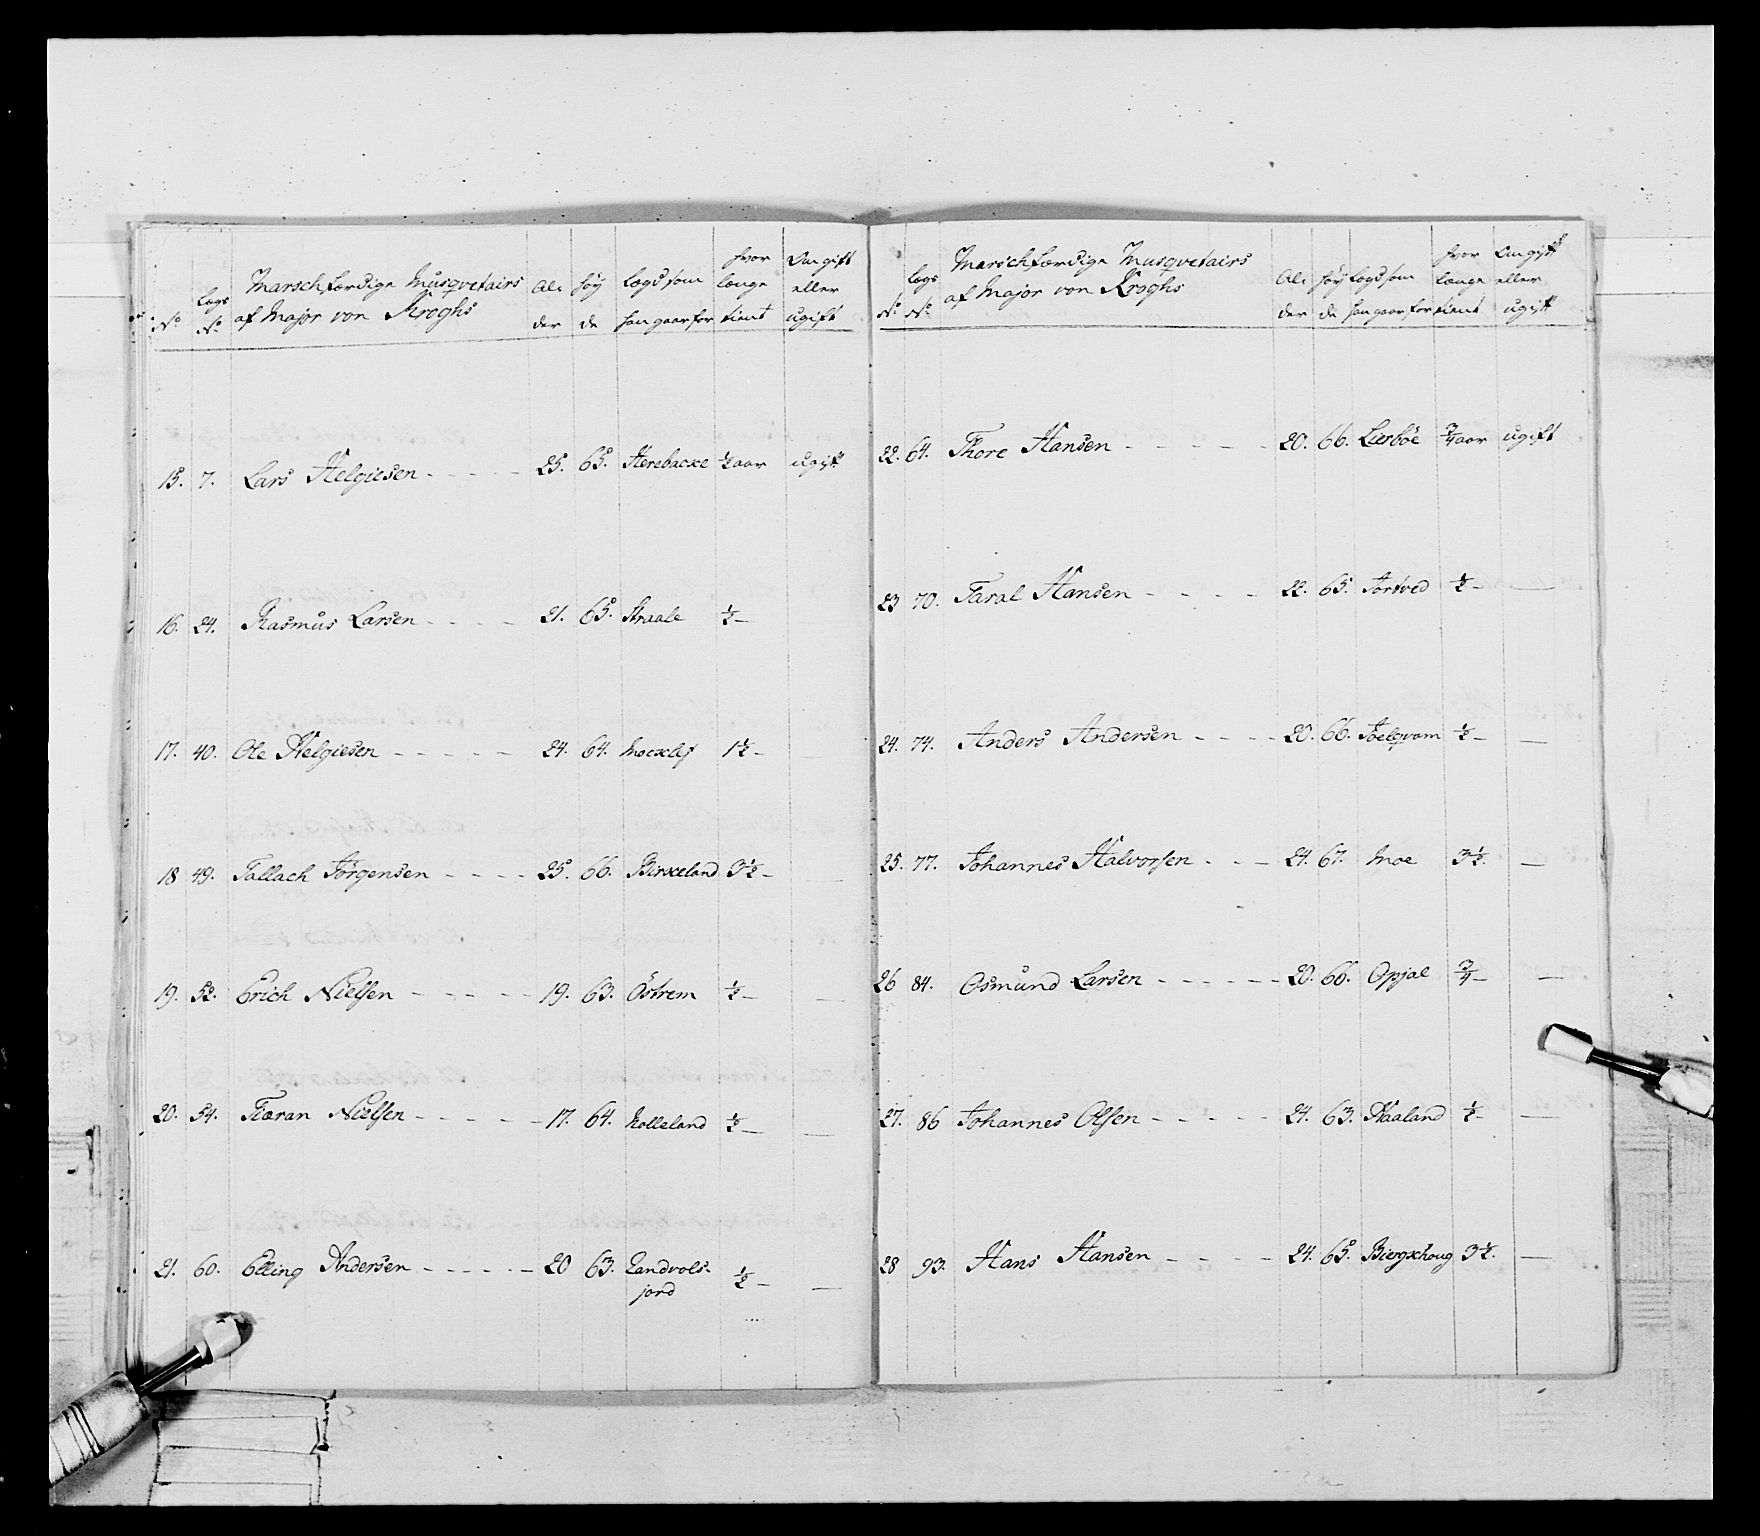 No
Lægs No
Marschfærdige Musqvetairs
af Major von Kroghs
Al-
der
Høy
de
Lægd som
han gaar for
hvor
længe
tient
Om gift
eller
ugift
15. 7. Lars Helgiesen - - - - 25. 65. Herebacke ½ aar ugift
16. 24. Rasmus Larsen - - - - 21. 65. Straale ½ -
17. 40. Ole Helgiesen - - - - - 24. 64. 1½ -
18 49. Tallach Jørgensen - - - - 25. 66. Birkeland 3½ - -
19. 52. Erich Nielsen - - - - - 19. 63. Östrem ½ - -
20. 54. Tiæran Nielsen - - - - - 17. 64. Molleland ½ - -
21. 60. Elling Andersen - - - - - 20 63. Landvols-
jord ½ - -
No
Lægs No
Marschfærdige Musqvetairs
af Major von Kroghs
Al-
der
Høy
de
Lægd som
han gaar for
hvor
længe
tient
Om gift
eller
ugift
22. 64. Thore Hansen - - - - - 20. 66. Lierböe ¾ aar ugift
23 70. Taral Hansen - - - - 22. 65. Tortved ½ - -
24. 74. Anders Andersen - - - - 20. 66. Toelqvam ½ - -
25. 77. Johannes Halvorsen - - - 24. 67. Moe 3½. -
26 84. Osmund Larsen - - - - - - 20. 66. Opjal ¾ - -
27. 86 Johannes Olsen - - - - - 24. 63. Haaland ½ - -
28 93. Hans Hansen - - - - 24. 65. Biergkhoug 3½. -